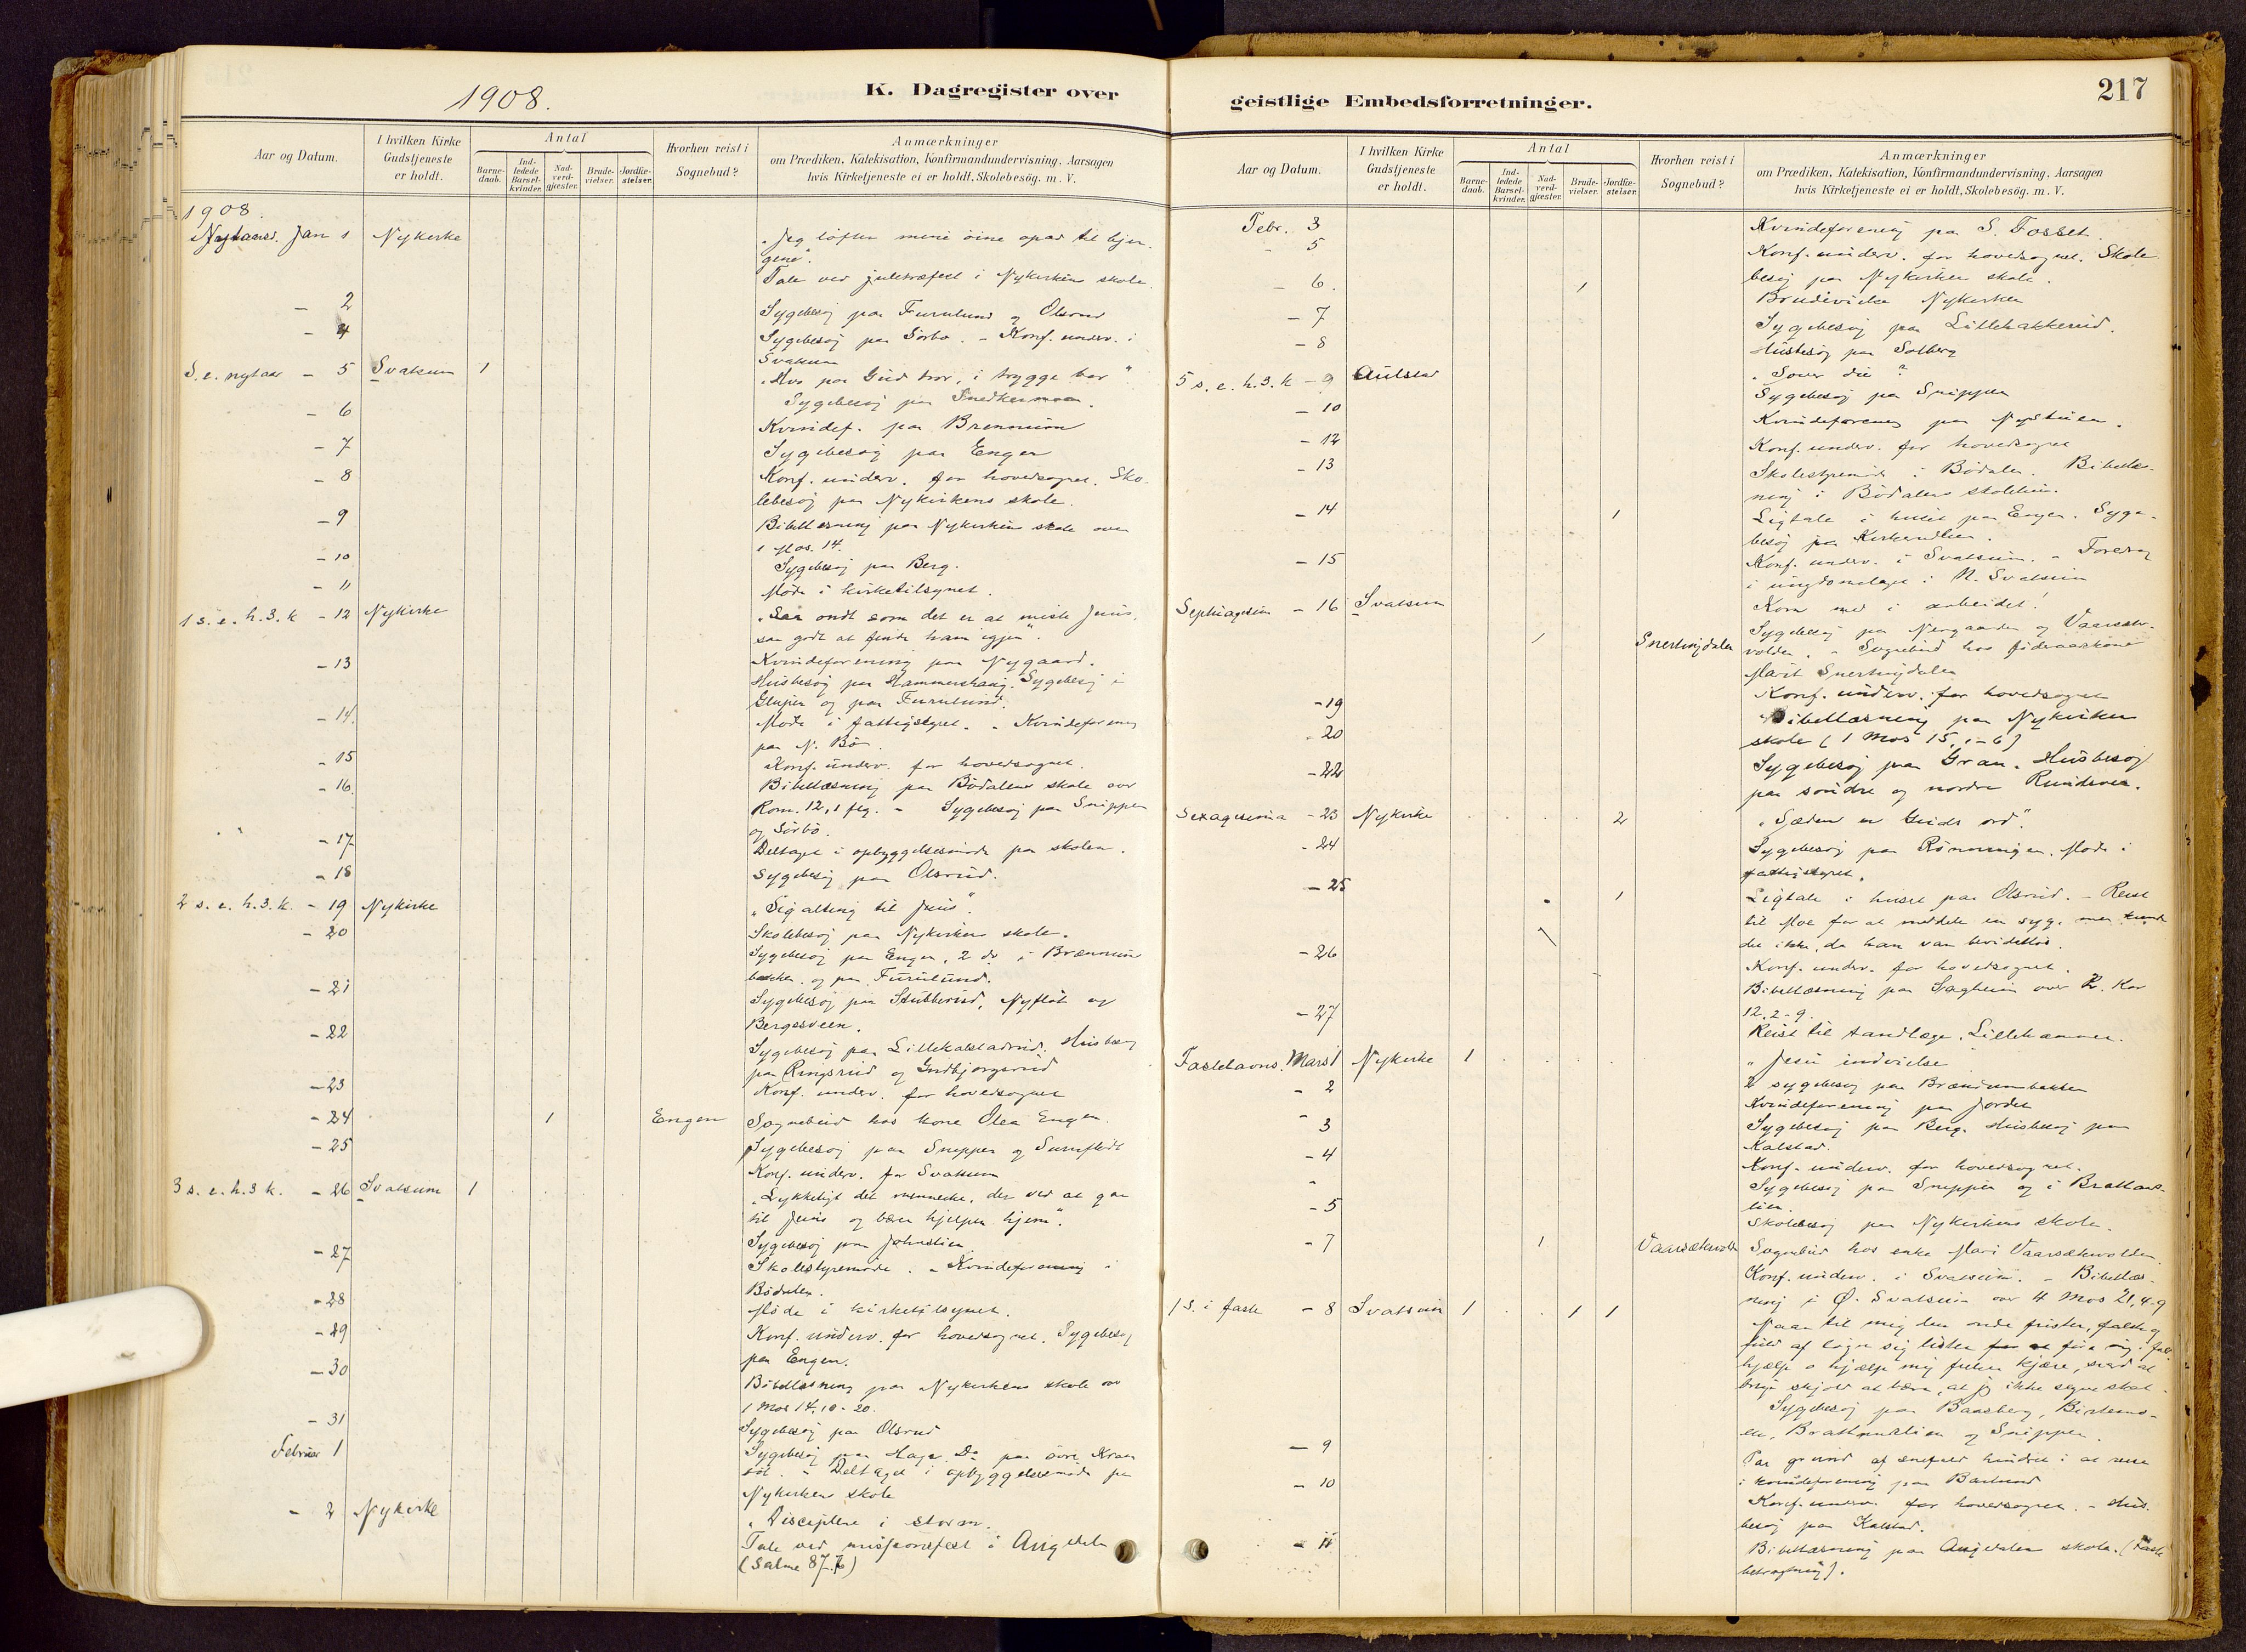 1908.
K. Dagregister over
Aar og Datum.
I hvilken Kirke
Gudstjeneste
er holdt.
Antal
Barne-
daab.
Ind-
ledede
Barsel-
kvinder.
Nad-
verd-
gjæster.
Brude-
vielser.
Jordfæ-
stelser.
Hvorhen reist i
Sognebud?
Anmærkninger
om Prædiken, Katekisation, Konfirmandundervisning, Aarsagen
hvis Kirketjeneste ei er holdt, Skolebesög. m. V.
1908.
Nytaarsd. Jan 1 Nykirke "Jeg löfter mine öine opad til bjer-
gene".
Tale ved juletræfest i Nykirkens skole.
- 2 Sygebesög paa Furulund og Olsrud
- 4 Sygebesög paa Sörbö. - Konf. underv. i
Svatsum
S. e. nytaar - 5 Svatsum 1 "Hvo paa Gud tror, i trygge bor"
Sygebesög paa Snedkermoen.
- 6 Kvindef. paa Brennum
- 7 Sygebesög paa Enger
- 8 Konf. underv. for hovedsognet. Sko-
lebesög paa Nykirkens skole.
- 9 Bibellæsning paa Nykirkens skole over
1 Mos. 14.
- 10 Sygebesög paa Berg.
- 11 Möde i kirketilsynet.
1 s. e. h. 3. k - 12 Nykirke "Saa ondt som det er at miste Jesus,
saa godt at finde ham igjen".
- 13 Kvindeforening paa Nygaard.
Husbesög paa Hammershaug. Sygebesög i
og paa Furulund.
- 14. Möde i fattigstyret. - Kvindeforening
paa N. Bö.
- 15 Konf. underv. for hovedsognet.
- 16. Bibellæsning paa Bödalens skole over
Rom. 12, 1 flg. - Sygebesög paa Snippen
og Sörbö.
- 17 Deltaget i opbyggelsesmöde paa skolen.
- 18 Sygebesög paa Olsrud.
2 s. e. h. 3. k. - 19 Nykirke "Sig alting til Jesus".
- 20 Skolebesög paa Nykirkens skole.
Sygebesög paa Engen, 2 do i Brænnum
bakken og paa Furulund.
- 21 Sygebesög paa Stubberud, Nyflöt og
Bergesveen.
- 22 Sygebesög paa Husbesög
paa Ringsrud og Gudbjorgsrud
- 23 Konf. underv. for hovedsognet
- 24 1 Engen Sognebud hos kone Olea Engen.
- 25 Sygebesög paa Snippen og
Konf. underv. for Svatsum
3 s. e. h. 3 k. - 26 Svatsum 1 "Lykkeligt det menneske, der ved at gaa
til Jesus og bære hjelpen hjem".
Sygebesög paa
- 27 Skolestyremöde. - Kvindeforening i
Bödalen.
- 28 Möde i kirketilsynet.
- 29 Konf. underv. for hovedsognet. Sygebesög
paa Engen.
- 30 Bibellæsning paa Nykirkens skole over
1 Mos 14, 10-20.
- 31 Sygebesög paa Olsrud
Februar 1 Sygebesög paa Hage. Do paa övre
- Deltaget i opbyggelsesmöde paa
Nykirkens skole
- 2 Nykirke "Disciplene i storm.
Tale ved missionsfest i Augedalen
(Salme 87.7)
geistlige Embedsforretninger.
217
Aar og Datum.
I hvilken Kirke
Gudstjeneste
er holdt.
Antal
Barne-
daab.
Ind-
ledede
Barsel-
kvinder.
Nad-
verd-
gjæster.
Brude-
vielser.
Jordfæ-
stelser.
Hvorhen reist i
Sognebud?
Anmærkninger
om Prædiken, Katekisation, Konfirmandundervisning, Aarsagen
hvis Kirketjeneste ei er holdt, Skolebesög. m. V.
Febr. 3 Kvindeforening paa S. Fosset.
- 5 Konf. underv. for hovedsognet. Skole
besög paa Nykirkens skole.
- 6. 1 Nykirken
- 7 Sygebesög paa
- 8 Husbesög paa Solberg
5 s. e. h. 3. k - 9 Aulstad "Sover du?
Sygebesög paa Snippen
- 10 Kvindeforening paa Nystuen.
- 12 Konf. underv. for hovedsognet
- 13 Skolestyremöde i Bödalen. Bibellæs-
ning i Bödalens skolehus.
- 14 1 Ligtale i huset paa Engen. Syge-
besög paa
- 15 Konf. underv. i Svatsum. - Foredrag
i ungdomslaget i N. Svatsum
Septuagesima - 16 Svatsum Kom med i arbeidet!
1 Snertingdalen Sygebesög paa Nergaarden og Vaarsæter-
volden. - Sognebud hos
Marit Snertingdalen
- 19 Konf. underv. for hovedsognet
- 20 Bibellæsning paa Nykirkens
skole (1 Mos 15, 1-6)
- 22 Sygebesög paa Gran. Husbesög
paa söndre og nordre
Sexagesima - 23 Nykirke 2 "Sæden er Guds ord".
- 24 Sygebesög paa Rönningen. Möde i
fattigstyret.
- 25 1 Ligtale i huset paa Olsrud. - Reist
til Moe for at meddele en syg, men kunde
det ikke, da han var bevidstlös.
- 26 Konf. underv. for hovedsognet.
Bibellæsning paa Sagheim over 2. Kor
12, 2-9.
- 27 Reist til tandlæge, Lillehammer.
Fastelavns. Mars 1 Nykirke 1 "Jesu indvielse
- 2 2 sygebesög paa Brænnumbakken
Kvindeforening paa Jordet
3 Sygebesög paa Berg. Husbesög paa
Kalstad.
- 4 Konf. underv. for hovedsognet.
Sygebesög paa Snippen og i
lien.
- 5 Skolebesög paa Nykirkens skole.
- 7 1 Sognebud hos enke Mari
Konf. underv. i Svatsum. - Bibellæs-
ning i Ö. Svatsum over 4 Mos 21, 4-9
1 S. i faste - 8 Svatsum 1 1 1 Naar til mig den onde frister, falsk og
fuld af lögn sig lister for at före mig i fald
hjælp o hjælp mig frelser kjære, sværd at
bruge skjold at bære, at jeg ikke segne skal.
Sygebesög paa Baasberg,
og Snippen.
- 9 Paa grund af snefald hindret i at reise
i kvindeforening paa
- 10 Konf. underv. for hovedsognet. - Hus-
besög paa Kalstad.
- 11 Bibellæsning paa Augedalen skole. (Faste
betragtning).